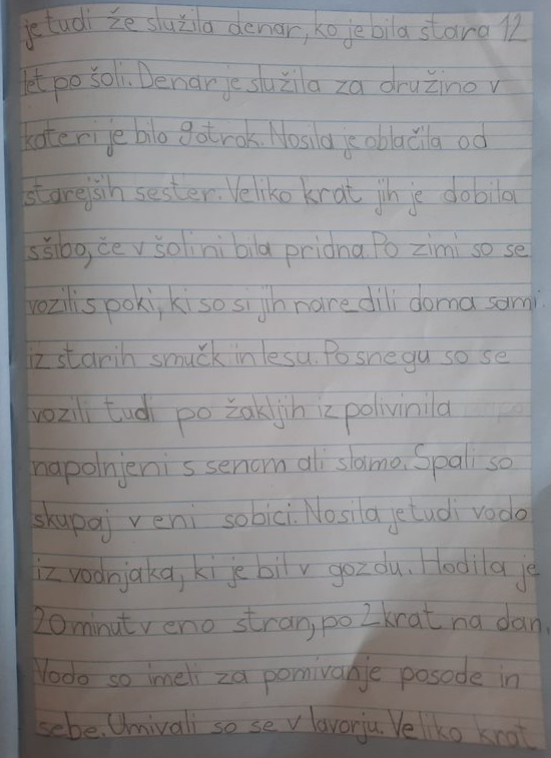 je tudi že služila denar, ko je bila stara 12
let po šoli. Denar je služila za družino v
kateri je bilo 9 otrok. Nosila je oblačila od
starejših sester. Veliko krat jih je dobila
s šibo, če v šoli ni bila pridna. Po zimi so se
vozili s poki, ki so si jih nare dili doma sami
iz starih smučk in lesu. Po snegu so se
vozili tudi po žakljih iz polivinila
napolnjeni s senom ali slamo. Spali so
skupaj v eni sobici. Nosila je tudi vodo
iz vodnjaka, ki je bil v gozdu. Hodila je
20 minut v eno stran, po 2 krat na dan.
Vodo so imeli za pomivanje posode in
sebe. Umivali so se v lavorju. Veliko krat